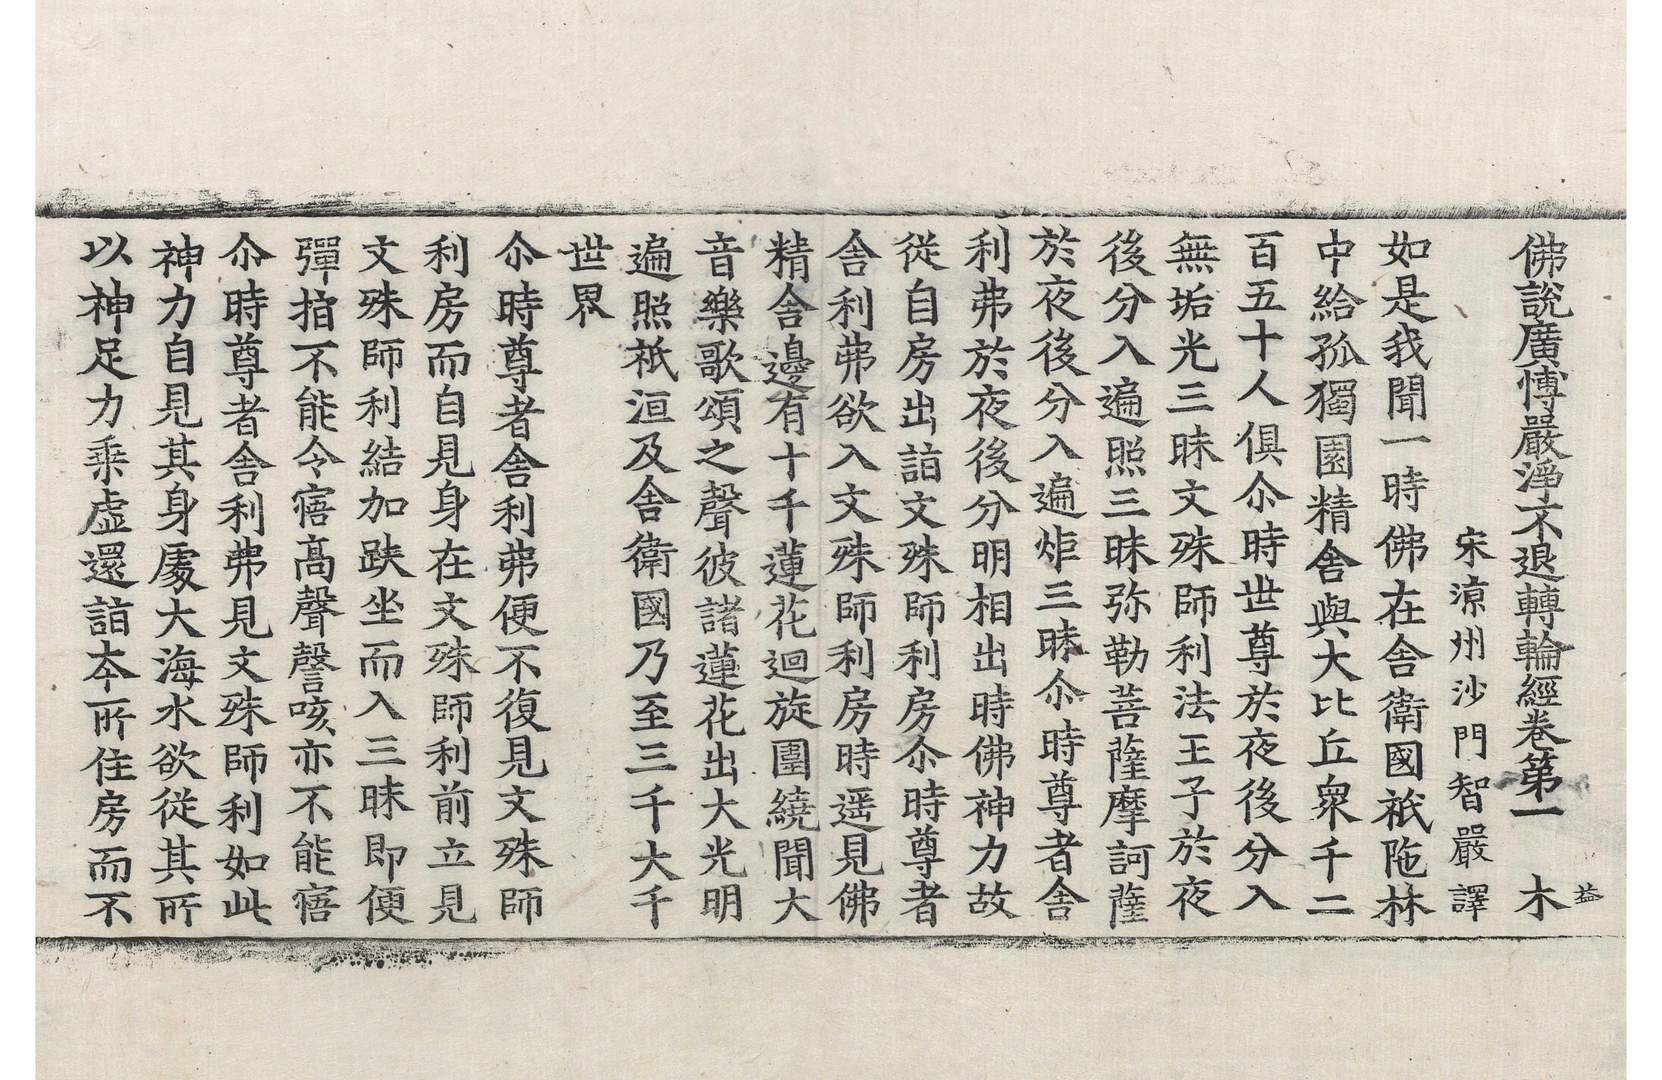 佛說廣博嚴淨不退轉輪經卷第一　木
益
宋涼州沙門智嚴譯
如是我聞一時佛在舍衛國祇陁林
中給孤獨園精舍與大比丘衆千二
百五十人俱尒時世尊於夜後分入
無垢光三昧文殊師利法王子於夜
後分入遍照三昧弥勒菩薩摩訶薩
於夜後分入遍炬三昧尒時尊者舍
利弗於夜後分明相出時佛神力故
從自房出詣文殊師利房尒時尊者
舍利弗欲入文殊師利房時遥見佛
精舍邊有十千蓮花迴旋圍繞聞大
音樂歌頌之聲彼諸蓮花出大光明
遍照祇洹及舍衛國乃至三千大千
世界
尒時尊者舍利弗便不復見文殊師
利房而自見身在文殊師利前立見
文殊師利結加趺坐而入三昧即便
彈指不能令寤高聲謦咳亦不能寤
尒時尊者舍利弗見文殊師利如此
神力自見其身處大海水欲從其所
以神足力乗虛還詣本所住房而不